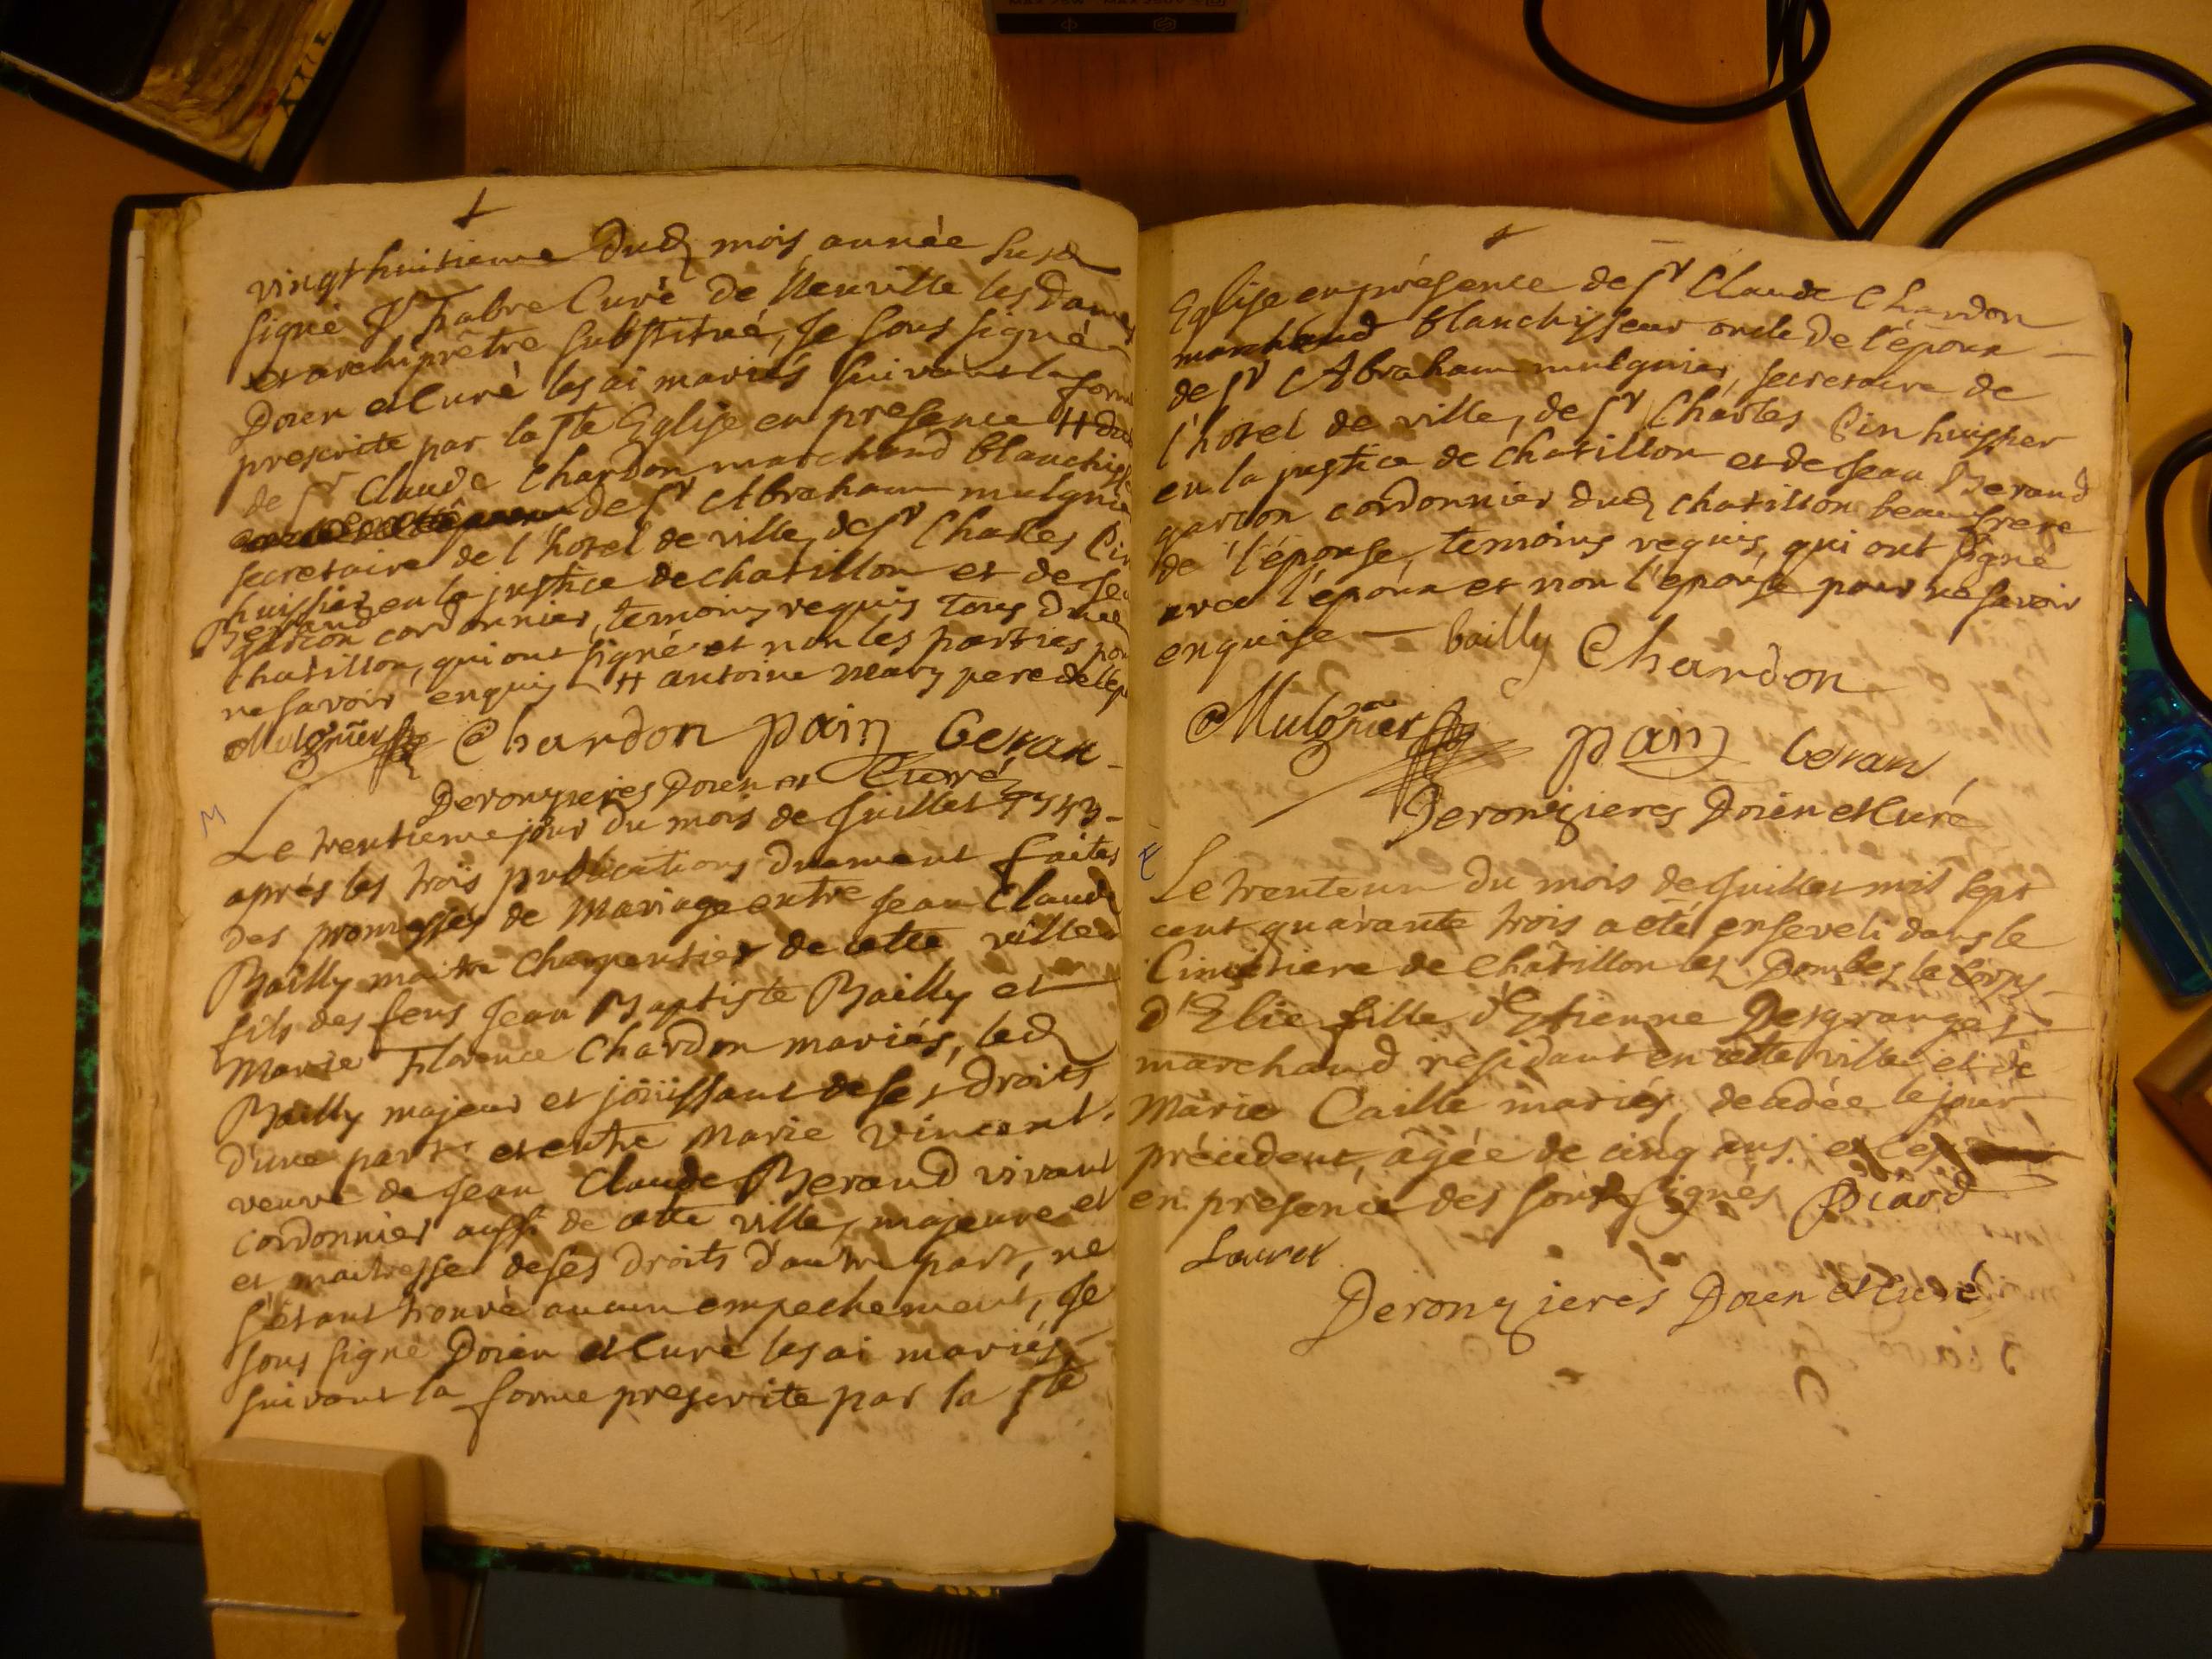 vingt huitieme dud mois, année susd
signé P Fabre Curé de Neuville les Dames
et archiprêtre substitué, Je sous signé
Doien et Curé les ai mariés suivant la form
prescrite par la Ste Eglise en presence H dud
de Sr Claude Chardon marchand blanchiss
de Sr Abraham mulgnie
secretaire de l'hotel de ville, de Sr Charles Pin
huissier en la justice de chatillon et de Je
Beraud
garcon cordonnier, temoins requis tous dud
chatillon, qui ont signé et non les parties pou
ne savoir enquis H antoine Mary pere de l'ép
Mulgnier Chardon pain beran
Deronzieres Doien et Curé
M
Le trentieme jour du mois de Juillet 1743
aprés les trois publications duement faites
des promesses de Mariage entre Jean Claude
Bailly maitre Charpentier de cette ville
fils des feus Jean Baptiste Bailly et
Marie Florence Chardon mariés, led
Bailly majeur et joüissant de ses droits
d'une part. et entre Marie Vincent
veuve de Jean Claude Beraud vivant
cordonnier aussi de cette ville, majeure et
et maitresse de ses droits d'autre part, ne
s'étant trouvé aucun empechement, Je
sous signé Doien et Curé les ai mariés
suivant la forme prescrite par la Ste
Eglise en présence de Sr Claude Chardon
marchand blanchisseur oncle de l'époux
de Sr Abraham mulgnier, secretaire de
l'hotel de ville, de Sr Charles Pin huissier
en la justice de chatillon et de Jean Beraud
garcon cordonnier dud chatillon beaufrere
de l'épouse, temoins requis, qui ont signé
avec l'époux et non l'épouse pour ne savoir
enquise bailly Chardon
Mulgnier pain beran
Deronzieres Doien et Curé
E
Le trenteun du mois de Juillet mil sept
cent quarante trois a eté enseveli dans le
Cimetiere de Châtillon les Dombes le corps
d'Elie fille d'Etienne Desgranges
marchand residant en cette ville et de
Marie Caille mariés, decedée le jour
précedent, âgée de cinq ans. et ce
en presence des sous signés Picard
Louvet
Deronzieres Doien et Curé